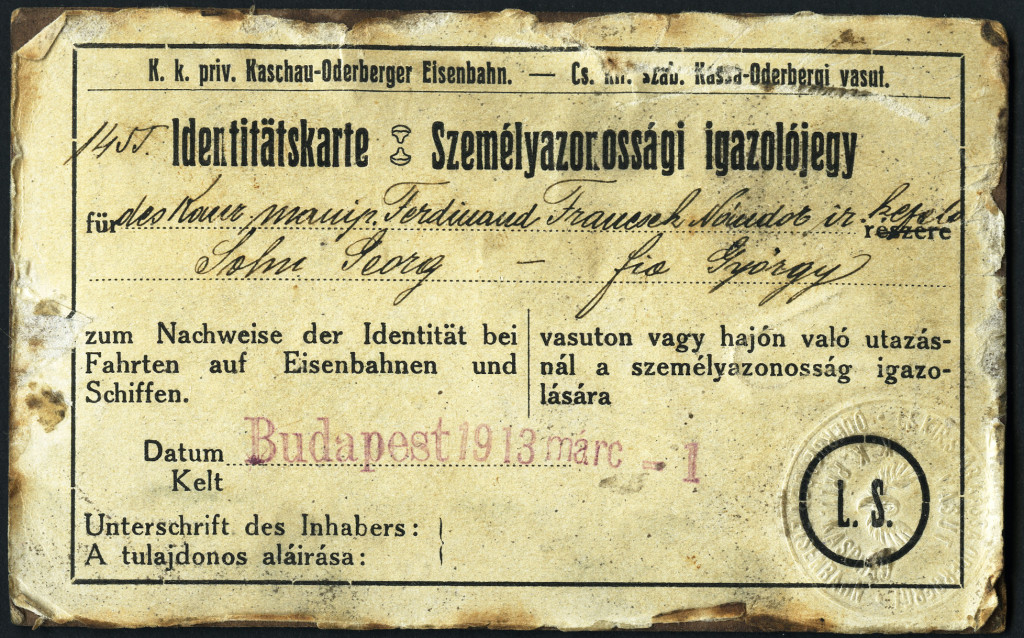 K. k. priv. Kaschau-Oderberger Eisenbahn. — Cs. kir. szab. Kassa-Oderbergi vasut.
1455. Identitätskarte Személyazonossági igazolójegy
für des Kanz. manip. Ferdinand Francsek Nándor ir. kezelő részére
Sohn Georg — fia György
zum Nachweise der Identität bei Fahrten auf Eisenbahnen und Schiffen.
vasuton vagy hajón való utazásnál a személyazonosság igazolására
Datum Budapest 1913 márc - 1
Kelt
L. S.
Unterschrift des Inhabers:
A tulajdonos aláirása: